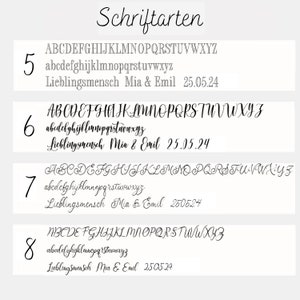 Schriftarten
5
ABCDEFGHIJKLMNOPQRSTUVWXYZ
abcdefghijklmnopqrstuvwxyz
Lieblingsmensch Mia & Emil 25.05.24
6
ABCDEFGHIJKLMNOPQRSTUVWXYZ
abcdefghijklmnopqrstuvwxyz
Lieblingsmensch Mia & Emil 25.05.24
7
ABCDEFGHIJKLMNOPQRSTUVWXYZ
abcdefghijklmnopqrstuvwxyz
Lieblingsmensch Mia & Emil 25.05.24
8
ABCDEFGHIJKLMNOPQRSTUVWXYZ
abcdefghijklmnopqrstuvwxyz
Lieblingsmensch Mia & Emil 25.05.24